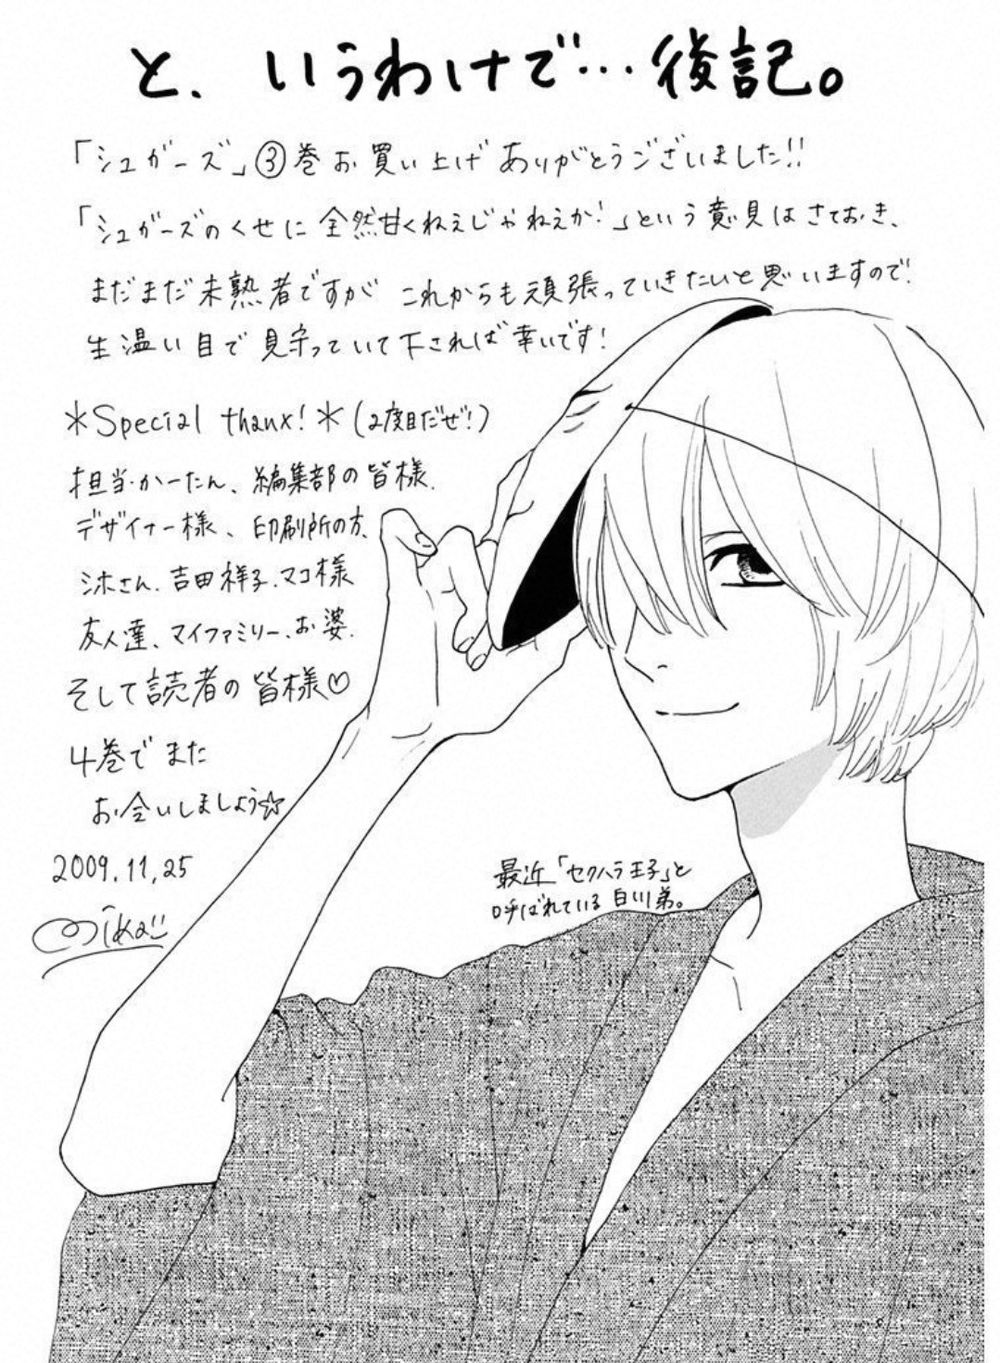 と、いうわけで…後記。
「シュガーズ」③巻お買い上げありがとうございました!!
「シュガーズのくせに全然甘くねえじゃねえか!」という意見はさておき、
まだまだ未熟者ですがこれからも頑張っていきたいと思いますので!
生温い目で見守っていて下されば幸いです!
*Special thanx!*(2度目だぜ!)
担当・かーたん、編集部の皆様、
デザイナー様、印刷所の方、
シホさん、吉田祥子、マコ様
友人達、マイファミリー、お婆、
そして読者の皆様♡
4巻でまた
お会いしましょう☆
2009.11.25
Mika
最近「セクハラ王子」と
呼ばれている白川弟。